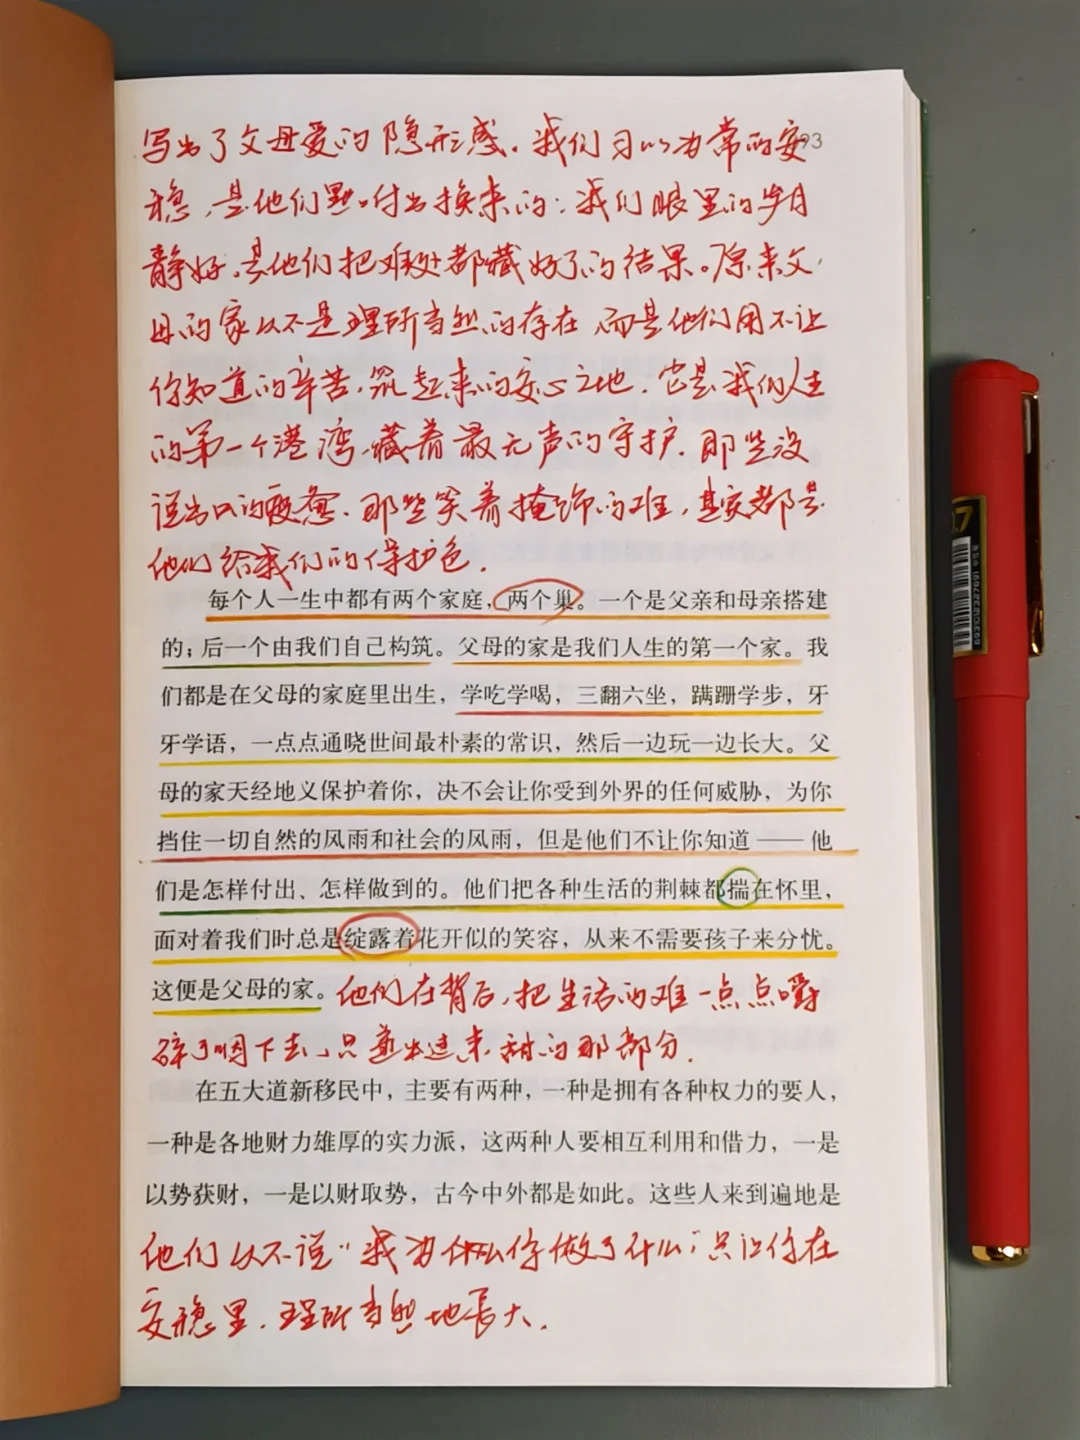 写出了父母爱的隐形感。我们习以为常的安
93
稳,是他们默默付出换来的;我们眼里的岁月
静好,是他们把难处都藏好了的结果。原来父
母的家从不是理所当然的存在,而是他们用不让
你知道的辛苦,筑起来的安心之地。它是我们人生
的第一个港湾,藏着最无声的守护。那些没
说出口的疲惫、那些笑着掩饰的难,其实都是
他们给我们的保护色。
每个人一生中都有两个家庭,两个巢。一个是父亲和母亲搭建
的;后一个由我们自己构筑。父母的家是我们人生的第一个家。我
们都是在父母的家庭里出生,学吃学喝,三翻六坐,蹒跚学步,牙
牙学语,一点点通晓世间最朴素的常识,然后一边玩一边长大。父
母的家天经地义保护着你,决不会让你受到外界的任何威胁,为你
挡住一切自然的风雨和社会的风雨,但是他们不让你知道——他
们是怎样付出、怎样做到的。他们把各种生活的荆棘都揣在怀里,
面对着我们时总是绽露着花开似的笑容,从来不需要孩子来分忧。
这便是父母的家。他们在背后,把生活的难一点点嚼
碎了咽下去,只递出过来甜的那部分.
在五大道新移民中,主要有两种,一种是拥有各种权力的要人,
一种是各地财力雄厚的实力派,这两种人要相互利用和借力,一是
以势获财,一是以财取势,古今中外都是如此。这些人来到遍地是
他们从不说"我为什么你做了什么",只让你在
安稳里,理所当然地長大.
0.7